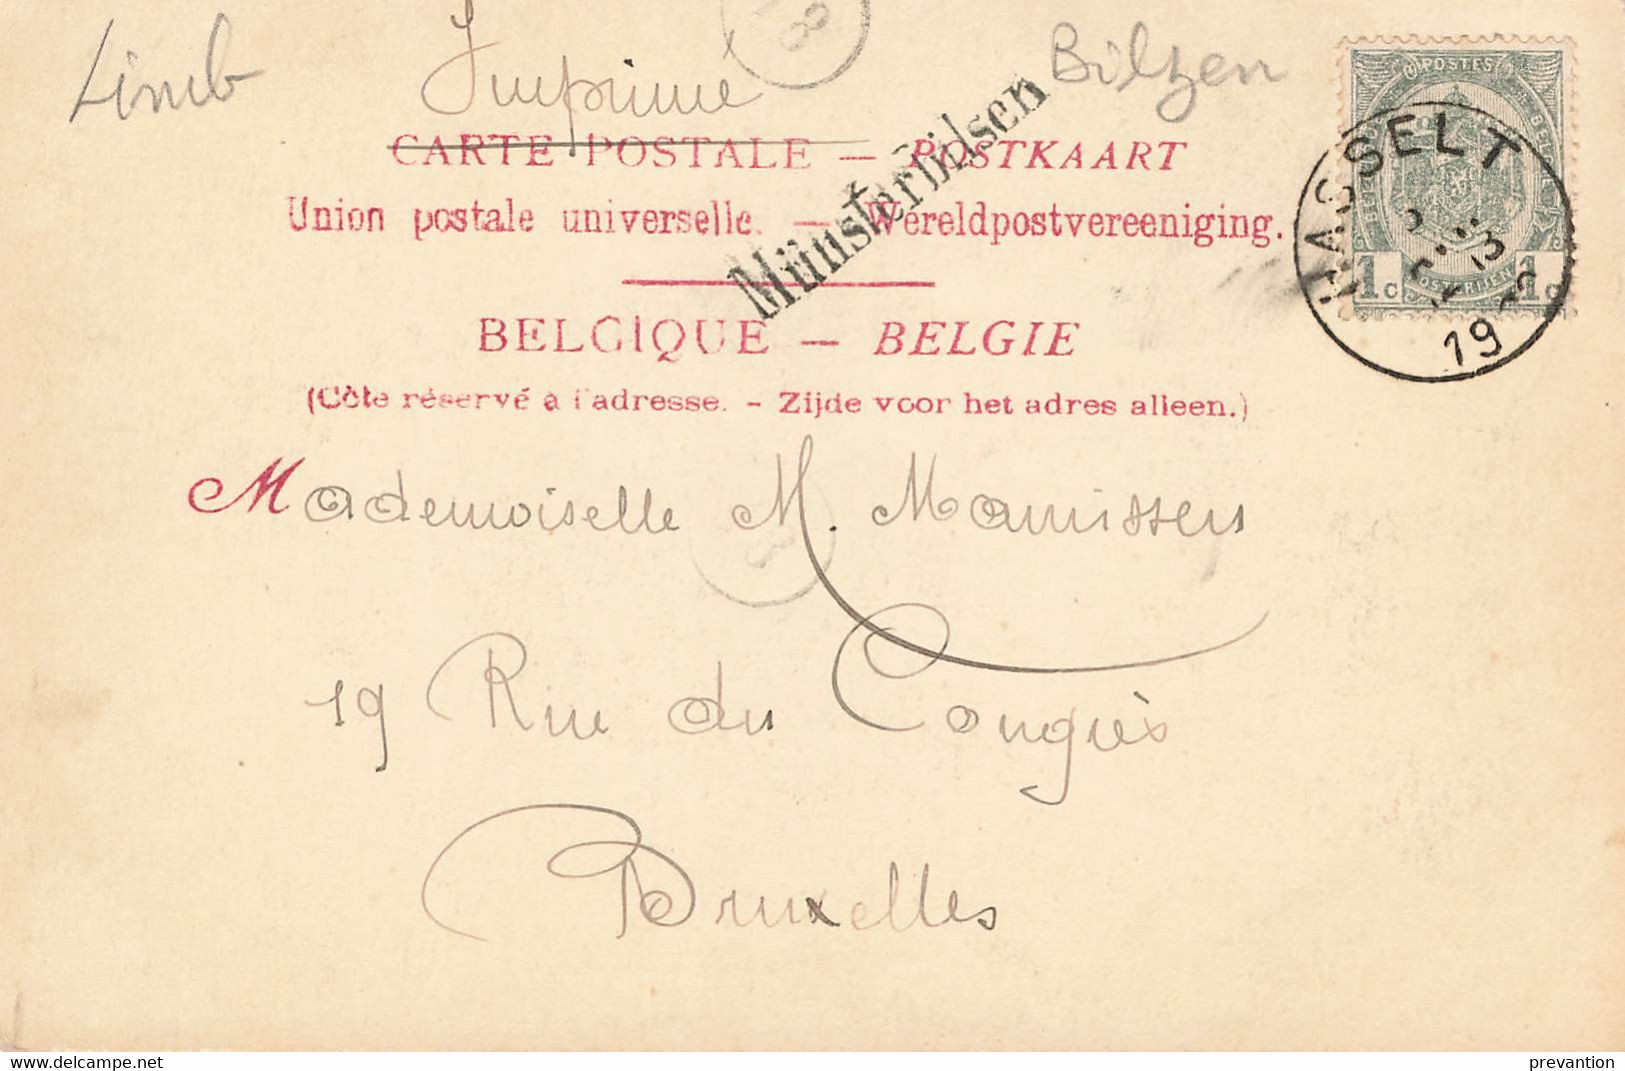 Limb Imprimé Bilzen
Münsterbilsen
CARTE POSTALE — POSTKAART
Union postale universelle. — Wereldpostvereeniging.
BELGIQUE — BELGIE
(Côté réservé à l'adresse. - Zijde voor het adres alleen.)
POSTES
HASSELT
13
19
1c 1c
Mademoiselle M. Mamissen
19 Rue du Congrès
Bruxelles
https://www.delcampe.net
prevantion